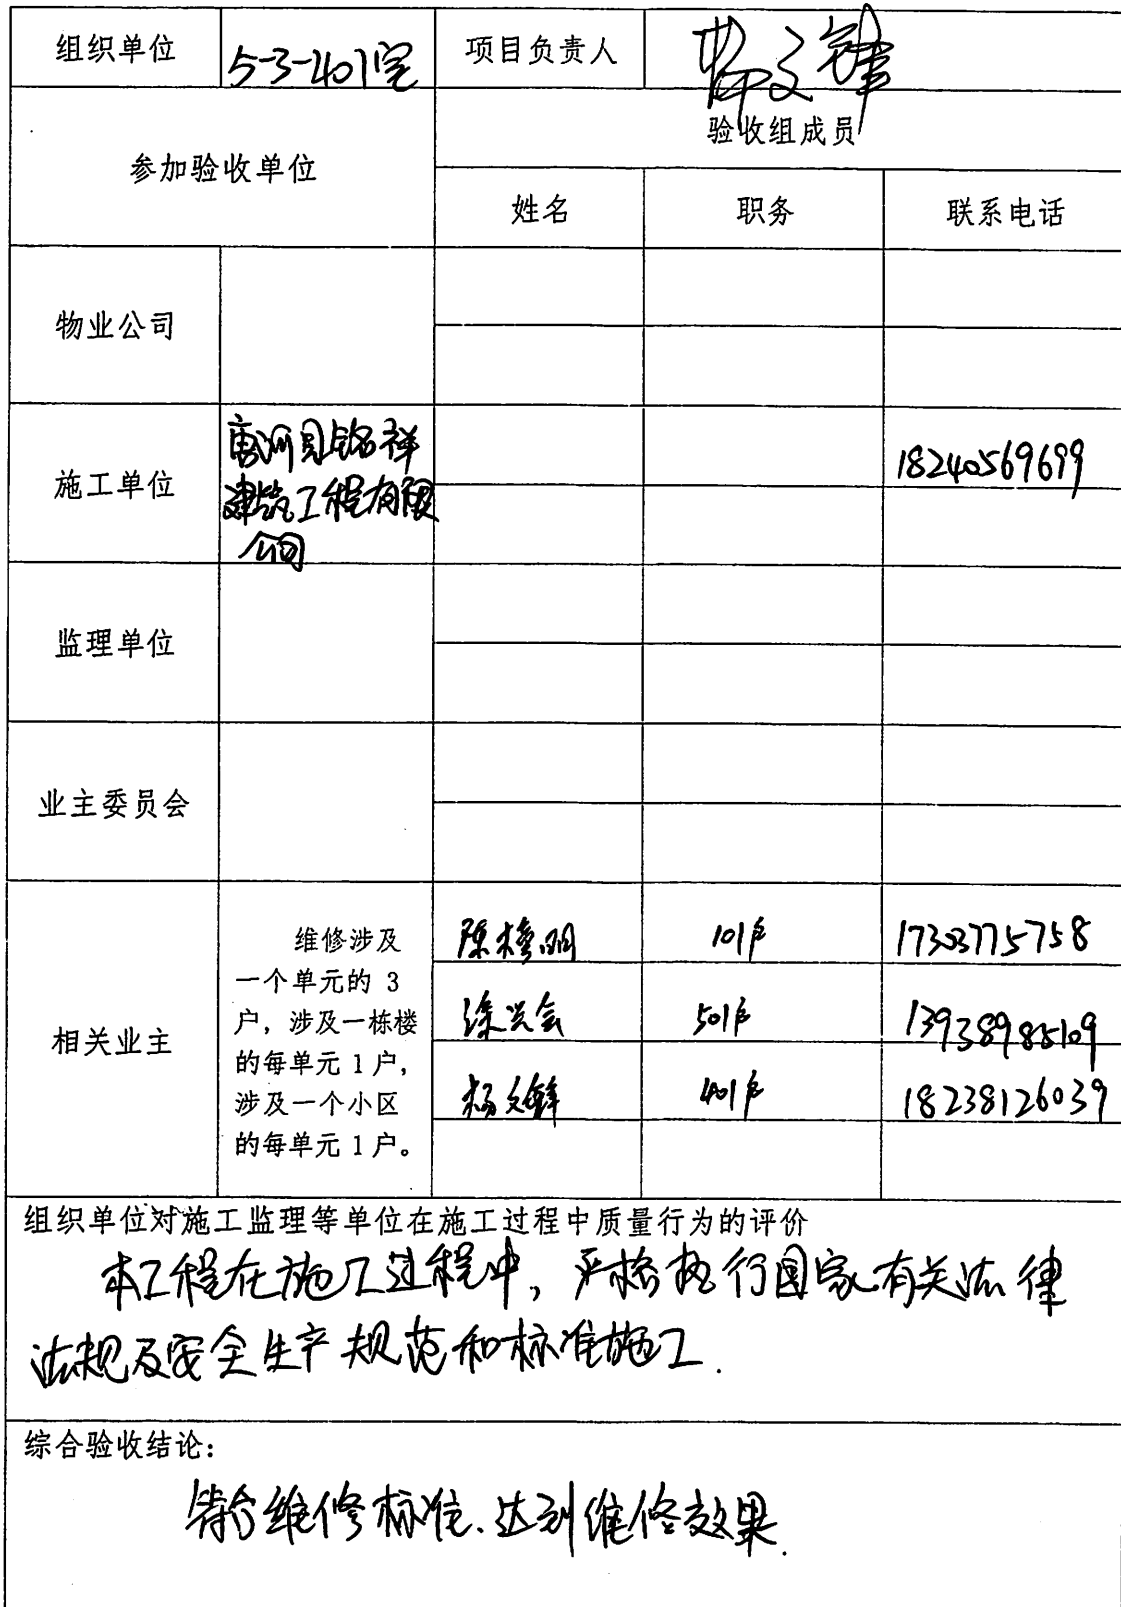 组织单位 5-3-401室 项目负责人 杨文锋
参加验收单位 验收组成员
姓名 职务 联系电话
物业公司
施工单位 唐河县铭祥 18240569699
建筑工程有限
公司
监理单位
业主委员会
相关业主
维修涉及
一个单元的 3
户，涉及一栋楼
的每单元 1 户，
涉及一个小区
的每单元 1 户。
101户 17303775758
徐兴会 501户 13938985109
杨文锋 401户 18238126039
组织单位对施工监理等单位在施工过程中质量行为的评价
本工程在施工过程中，严格执行国家有关法律
法规及安全生产规范和标准施工.
综合验收结论：
符合维修标准、达到维修效果.